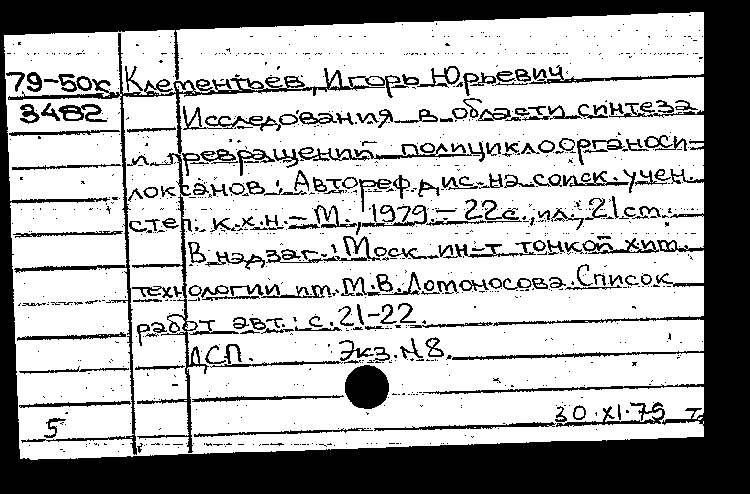 79-50к Клементьев, Игорь Юрьевич
3482 Исследования в области синтеза
и превращений полициклоорганоси-
локсанов: Автореф. дис. на соиск. учен.
степ. к.х.н. – М., 1979. – 22 с., ил.; 21 см.
В надзаг.: Моск. ин-т тонкой хим.
технологии им. М.В. Ломоносова. Список
работ авт.: с. 21-22.
ДСП. Экз. N 8.
5 30.XI.79